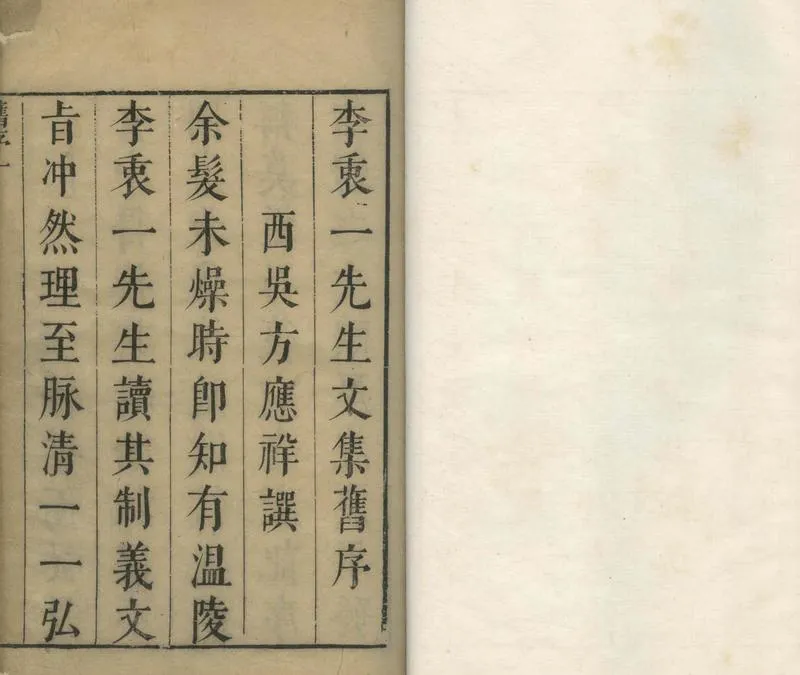 李衷一先生文集舊序
西吳方應祥譔
余髮未燥時卽知有溫陵
李衷一先生讀其制義文
旨冲然理至脉清一一弘
舊序一